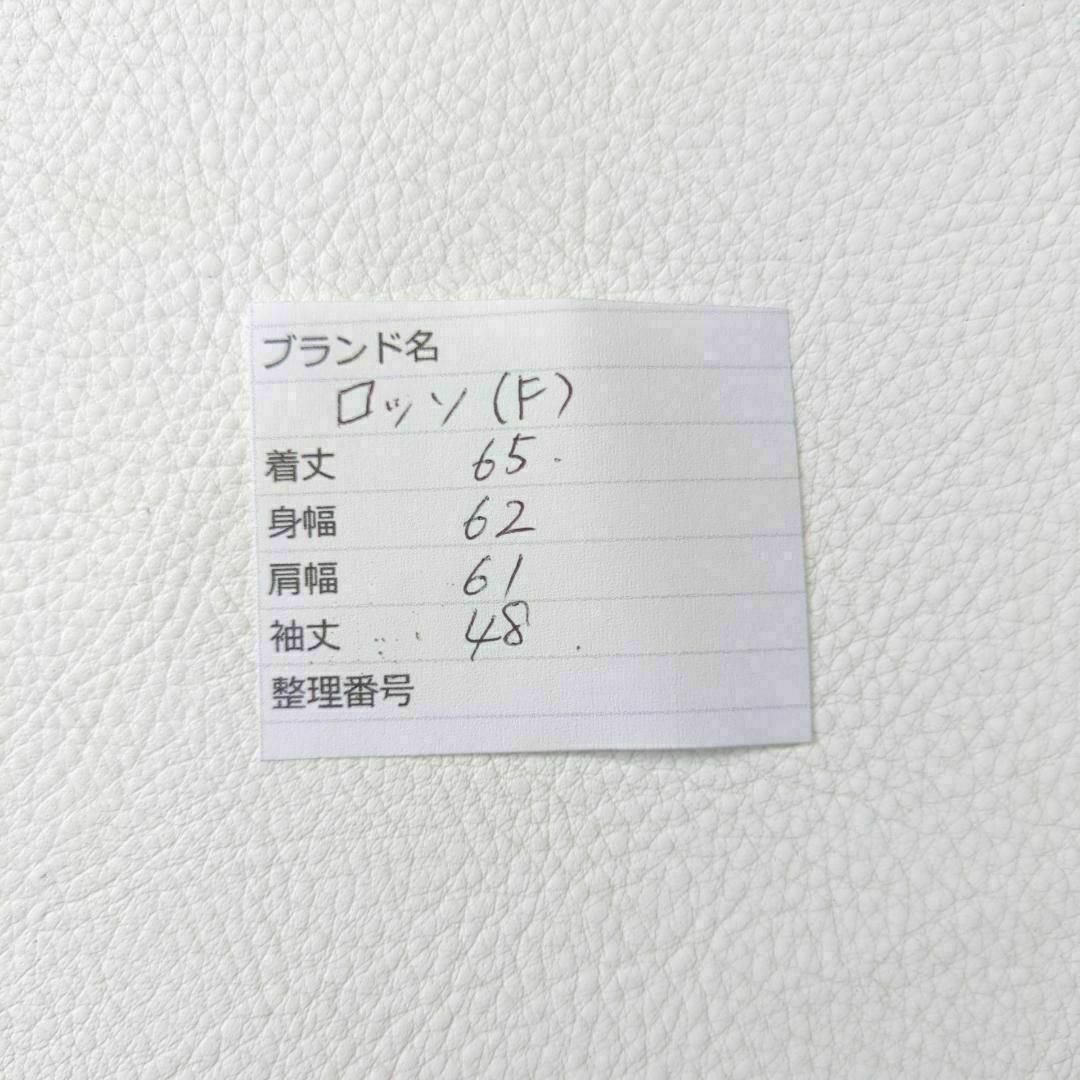 ブランド名
ロッソ(F)
着丈 65
身幅 62
肩幅 61
袖丈 48
整理番号